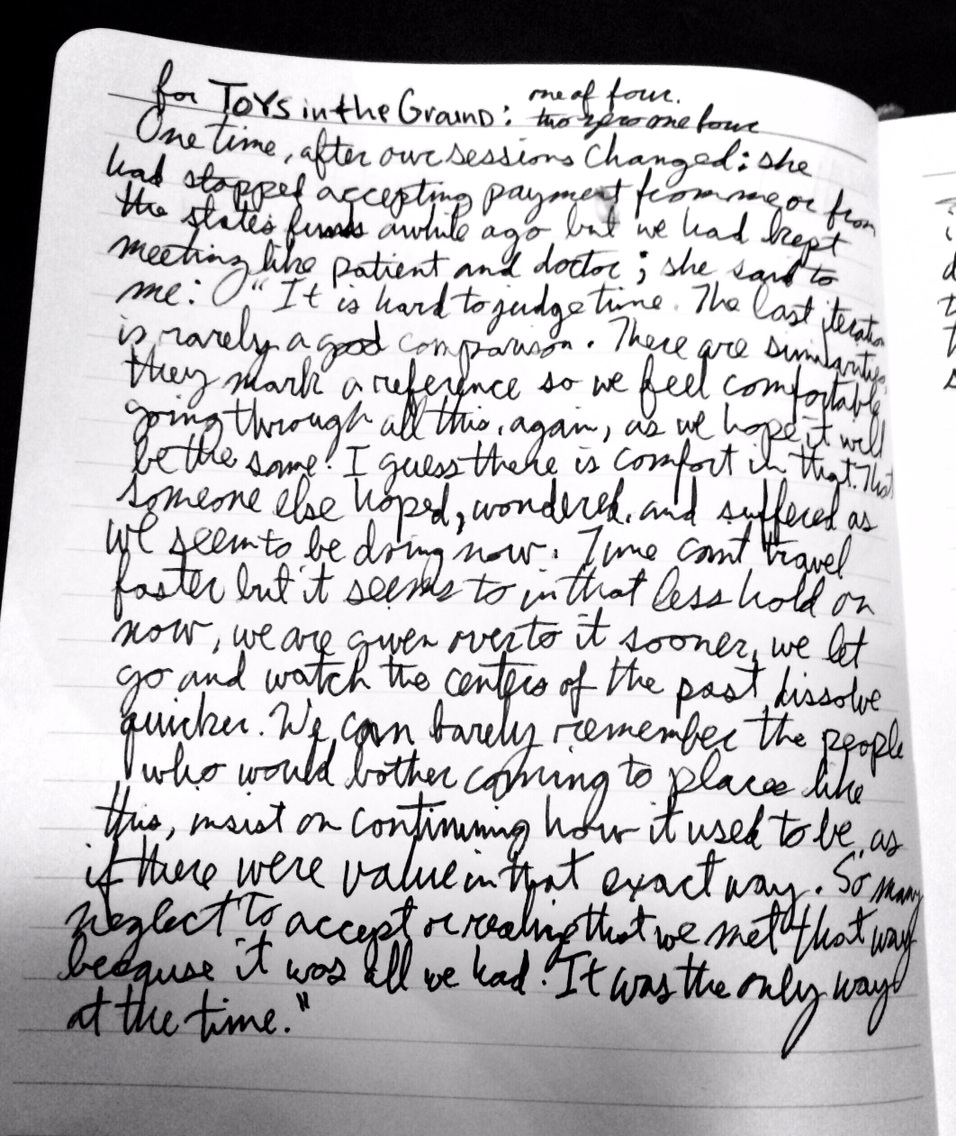 for TOYS in the GROUND: one of four.
two zero one four
One time, after our sessions changed: she
had stopped accepting payment from me or from
the states funds awhile ago but we had kept
meeting like patient and doctor; she said to
me: "It is hard to judge time. The last iteration
is rarely a good comparison. There are similarities,
they mark a reference so we feel comfortable
going through all this, again, as we hope it will
be the same. I guess there is comfort in that. That
someone else hoped, wondered, and suffered as
we seem to be doing now. Time can't travel
faster but it seems to in that less hold on
now, we are given over to it sooner, we let
go and watch the centers of the past dissolve
quicker. We can barely remember the people
who would bother coming to places like
this, insist on continuing how it used to be, as
if there were value in that exact way. So many
neglect to accept or realize that we met that way
because it was all we had. It was the only way
at the time."